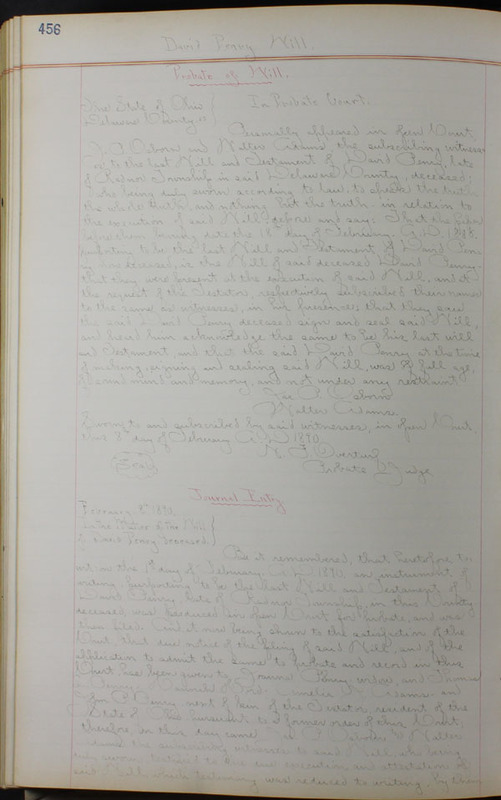 456
David Penry Will.
Probate of Will.
The State of Ohio
Delaware County ss
In Probate Court.
Personally appeared in open Court
Osborn and Walter Adams the subscribing witnesses
to the last Will and Testament of David Penry, late
of Radnor Township in said Delaware County, deceased;
who being duly sworn according to law, to speak the truth
the whole truth, and nothing but the truth, in relation to
the execution of said Will, depose and say: That the paper
before them bearing date the day of February, A.D. 1888,
purporting to be the last Will and Testament of David Pen-
ry, now deceased, is the Will of said deceased David Penry;
that they were present at the execution of said Will, and at
the request of the Testator, respectively subscribed their names
to the same as witnesses, in his presence; that they saw
the said David Penry deceased sign and seal said Will,
and heard him acknowledge the same to be his last will
and testament, and that the said David Penry, at the time
of making, signing and sealing said Will, was of full age,
of sound mind and memory, and not under any restraint.
Osborn
Walter Adams.
Sworn to and subscribed by said witnesses, in open Court,
this 8th day of February A.D. 1890.
Overturf
Seal
Probate Judge
Journal Entry
February 8th 1890.
In the Matter of the Will
of David Penry Deceased.
Be it remembered, that heretofore to
wit, on the day of February A.D. 1890, an instrument of
writing, purporting to be the last Will and Testament of
David Penry late of Radnor Township, in this County
deceased, was produced in open Court for probate, and was
then filed. And it now being shown to the satisfaction of the
Court, that due notice of the filing of said Will, and of the
application to admit the same to probate and record in this
Court, has been given to Penry widow, and Thomas
Penry, Adams and
Penry next of kin of the Testator, resident of the
State of pursuant to a former order of this Court,
therefore, on this day came Osborn & Walter
Adams the subscribing witnesses to said Will, who being
duly sworn, testified to the due execution, and attestation of
said Will, which testimony was reduced to writing, by them